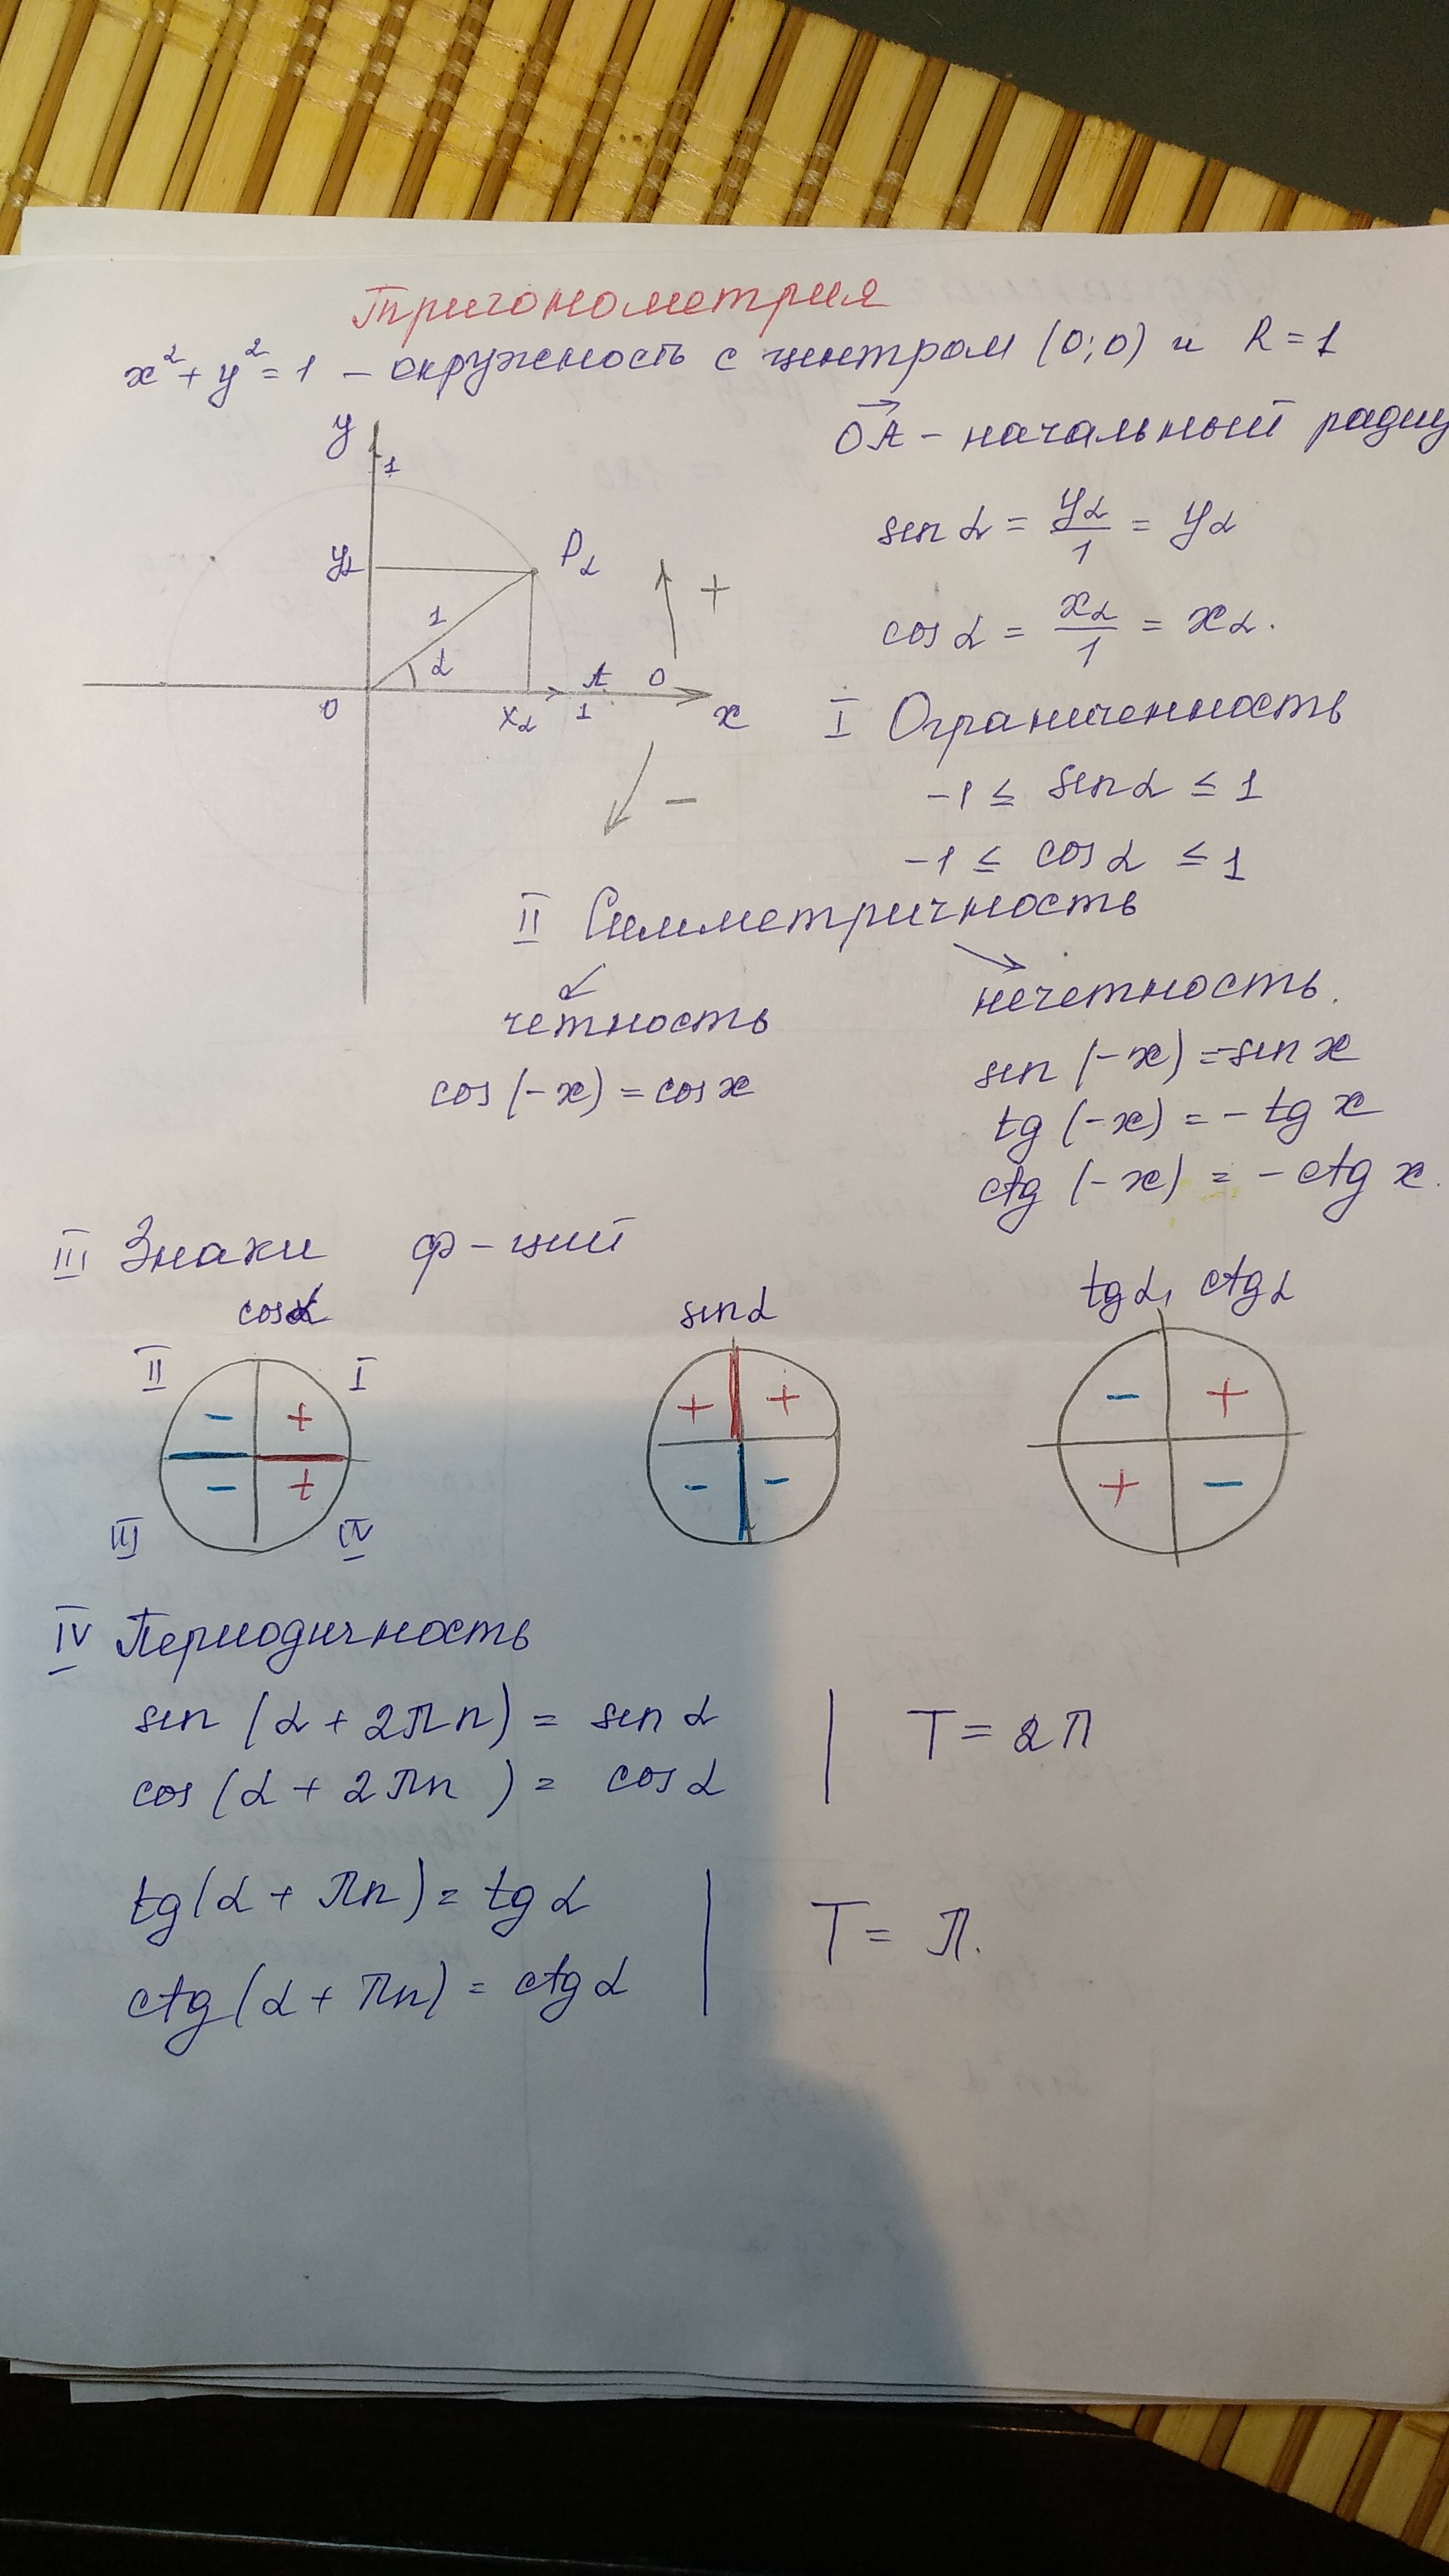 Тригонометрия
x² + y² = 1 – окружность с центром (0;0) и R = 1
y
1
OA – начальный радиу
sin α = yα/1 = yα
yα
Pα
+
1
cos α = xα/1 = xα.
α
A
0
0
xα
1
x
I Ограниченность
–
-1 ≤ sin α ≤ 1
-1 ≤ cos α ≤ 1
II Симметричность
четность
нечетность.
cos (-x) = cos x
sin (-x) = -sin x
tg (-x) = - tg x
ctg (-x) = - ctg x.
III Знаки ф-ций
cos α
sin α
tg α, ctg α
II
I
- +
- +
III
IV
+ +
- -
- +
+ -
IV Периодичность
sin (α + 2πn) = sin α
cos (α + 2πn ) = cos α
T = 2π
tg (α + πn) = tg α
ctg (α + πn) = ctg α
T = π.